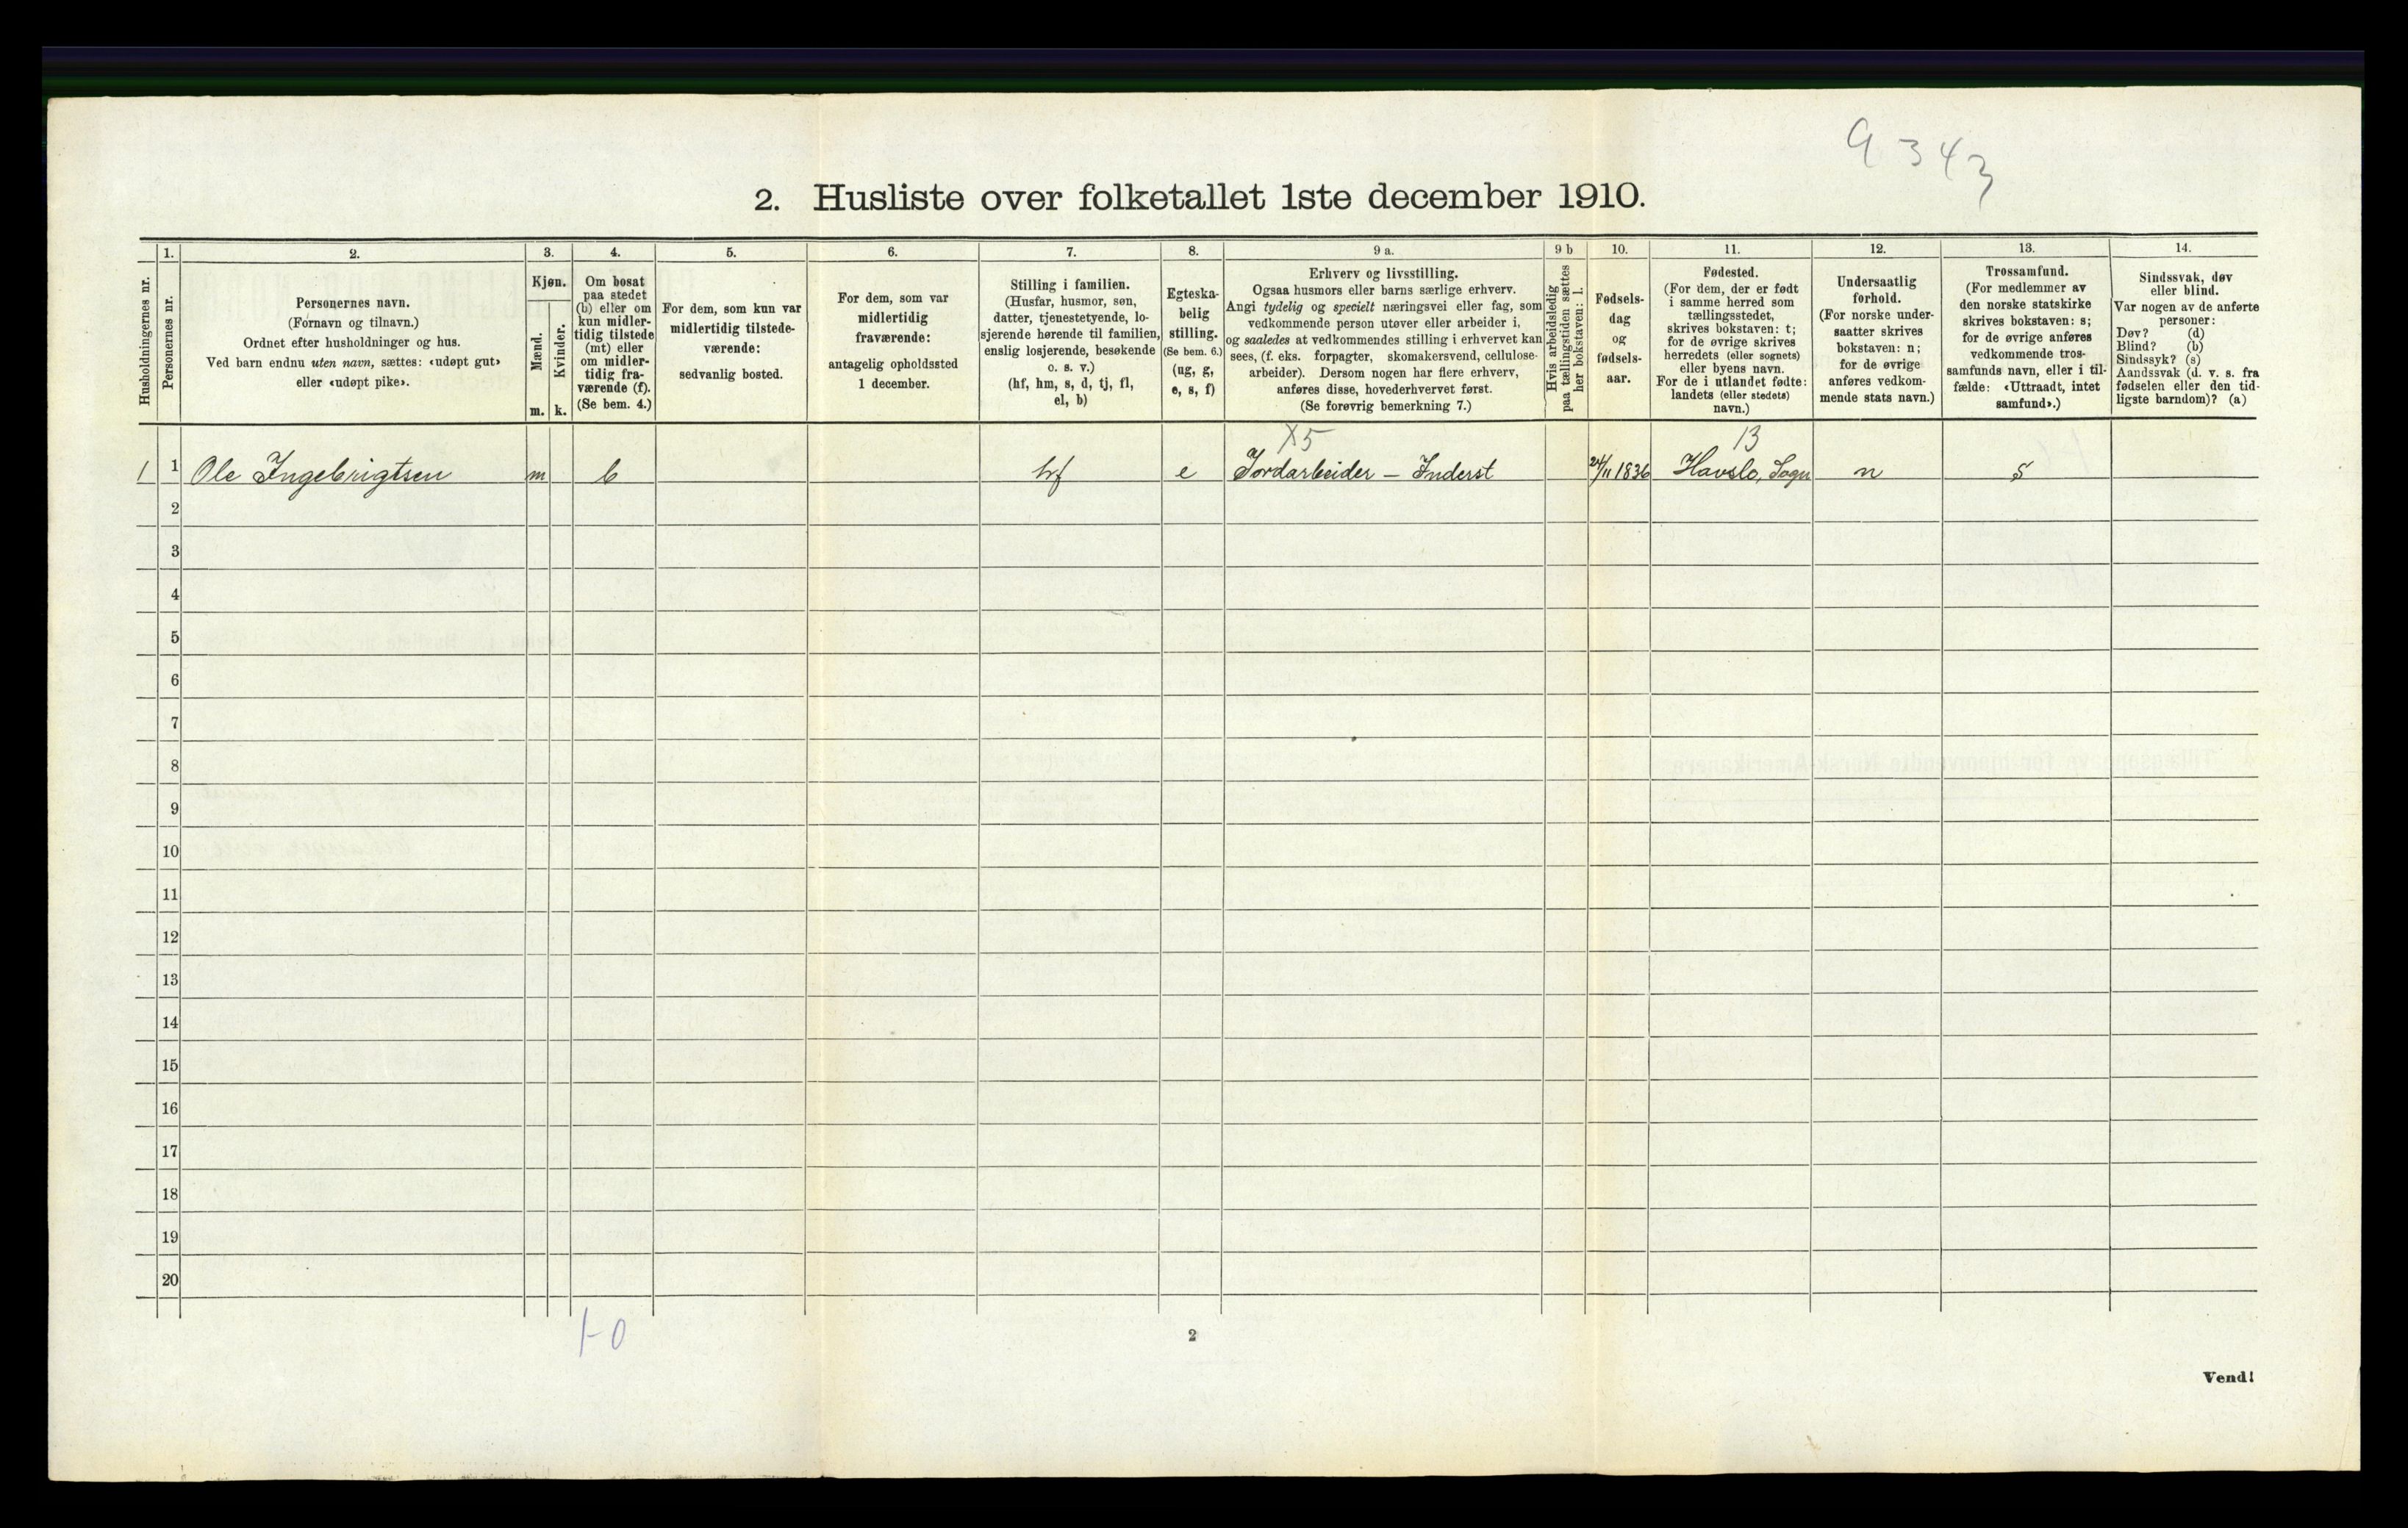 9 343
2. Husliste over folketallet 1ste december 1910.
Husholdningernes nr.
1.
Personernes nr.
2.
Personernes navn.
(Fornavn og tilnavn.)
Ordnet efter husholdninger og hus.
Ved barn endnu uten navn, sættes: «udøpt gut»
eller «udøpt pike».
3.
Kjøn.
Mænd.
m.
Kvinder.
k.
4.
Om bosat
paa stedet
(b) eller om
kun midler-
tidig tilstede
(mt) eller
om midler-
tidig fra-
værende (f).
(Se bem. 4.)
5.
For dem, som kun var
midlertidig tilstede-
værende:
sedvanlig bosted.
6.
For dem, som var
midlertidig
fraværende:
antagelig opholdssted
1 december.
7.
Stilling i familien.
(Husfar, husmor, søn,
datter, tjenestetyende, lo-
sjerende hørende til familien,
enslig losjerende, besøkende
o. s. v.)
(hf, hm, s, d, tj, fl,
el, b)
8.
Egteska-
belig
stilling.
(Se bem. 6.)
(ug, g,
e, s, f)
9 a.
Erhverv og livsstilling.
Ogsaa husmors eller barns særlige erhverv.
Angi tydelig og specielt næringsvei eller fag, som
vedkommende person utøver eller arbeider i,
og saaledes at vedkommendes stilling i erhvervet kan
sees, (f. eks. forpagter, skomakersvend, cellulose-
arbeider). Dersom nogen har flere erhverv,
anføres disse, hovederhvervet først.
(Se forøvrig bemerkning 7.)
9 b
Hvis arbeidsledig
paa tællingstiden sættes
her bokstaven: l.
10.
Fødsels-
dag
og
fødsels-
aar.
11.
Fødested.
(For dem, der er født
i samme herred som
tællingsstedet,
skrives bokstaven: t;
for de øvrige skrives
herredets (eller sognets)
eller byens navn.
For de i utlandet fødte:
landets (eller stedets)
navn.)
12.
Undersaatlig
forhold.
(For norske under-
saatter skrives
bokstaven: n;
for de øvrige
anføres vedkom-
mende stats navn.)
13.
Trossamfund.
(For medlemmer av
den norske statskirke
skrives bokstaven: s;
for de øvrige anføres
vedkommende tros-
samfunds navn, eller i til-
fælde: «Uttraadt, intet
samfund».)
14.
Sindssvak, døv
eller blind.
Var nogen av de anførte
personer:
Døv? (d)
Blind? (b)
Sindssyk? (s)
Aandssvak (d. v. s. fra
fødselen eller den tid-
ligste barndom)? (a)
X5 13
1 1 Ole Ingebrigtsen m b hf e Jordarbeider - Inderst 24/11 1836 Havslo, Sogn n s
2
3
4
5
6
7
8
9
10
11
12
13
14
15
16
17
18
19
20
1-0
2
Vend!